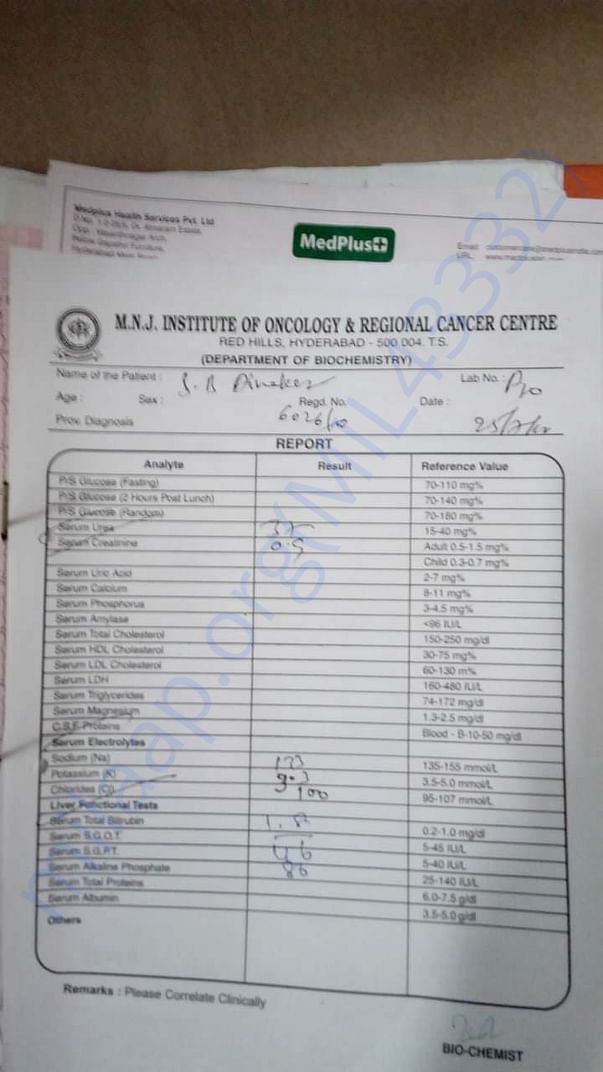 Medplus Health Services Pvt. Ltd
MedPlus
M.N.J. INSTITUTE OF ONCOLOGY & REGIONAL CANCER CENTRE
RED HILLS, HYDERABAD - 500 004. T.S.
(DEPARTMENT OF BIOCHEMISTRY)
Name of the Patient : Lab No. :
Age : Sex : Regd. No. Date :
Prov. Diagnosis
REPORT
Analyte Result Reference Value
P/S Glucose (Fasting) 70-110 mg%
P/S Glucose (2 Hours Post Lunch) 70-140 mg%
P/S Glucose (Random) 70-180 mg%
Serum Urea 15-40 mg%
Serum Creatinine Adult 0.5-1.5 mg%
Child 0.3-0.7 mg%
Serum Uric Acid 2-7 mg%
Serum Calcium 8-11 mg%
Serum Phosphorus 3-4.5 mg%
Serum Amylase <96 IU/L
Serum Total Cholesterol 150-250 mg/dl
Serum HDL Cholesterol 30-75 mg%
Serum LDL Cholesterol 60-130 m%
Serum LDH 160-480 IU/L
Serum Triglycerides 74-172 mg/dl
Serum Magnesium 1.3-2.5 mg/dl
C.S.F. Proteins Blood - B-10-50 mg/dl
Serum Electrolytes
Sodium (Na) 133 135-155 mmol/L
Potassium (K) 3.5-5.0 mmol/L
Chlorides (Cl) 100 95-107 mmol/L
Liver Functional Tests
Serum Total Bilirubin 0.2-1.0 mg/dl
Serum S.G.O.T. 5-45 IU/L
Serum S.G.P.T. 46 5-40 IU/L
Serum Alkaline Phosphate 86 25-140 IU/L
Serum Total Proteins 6.0-7.5 g/dl
Serum Albumin 3.5-5.0 g/dl
Others
Remarks : Please Correlate Clinically
BIO-CHEMIST